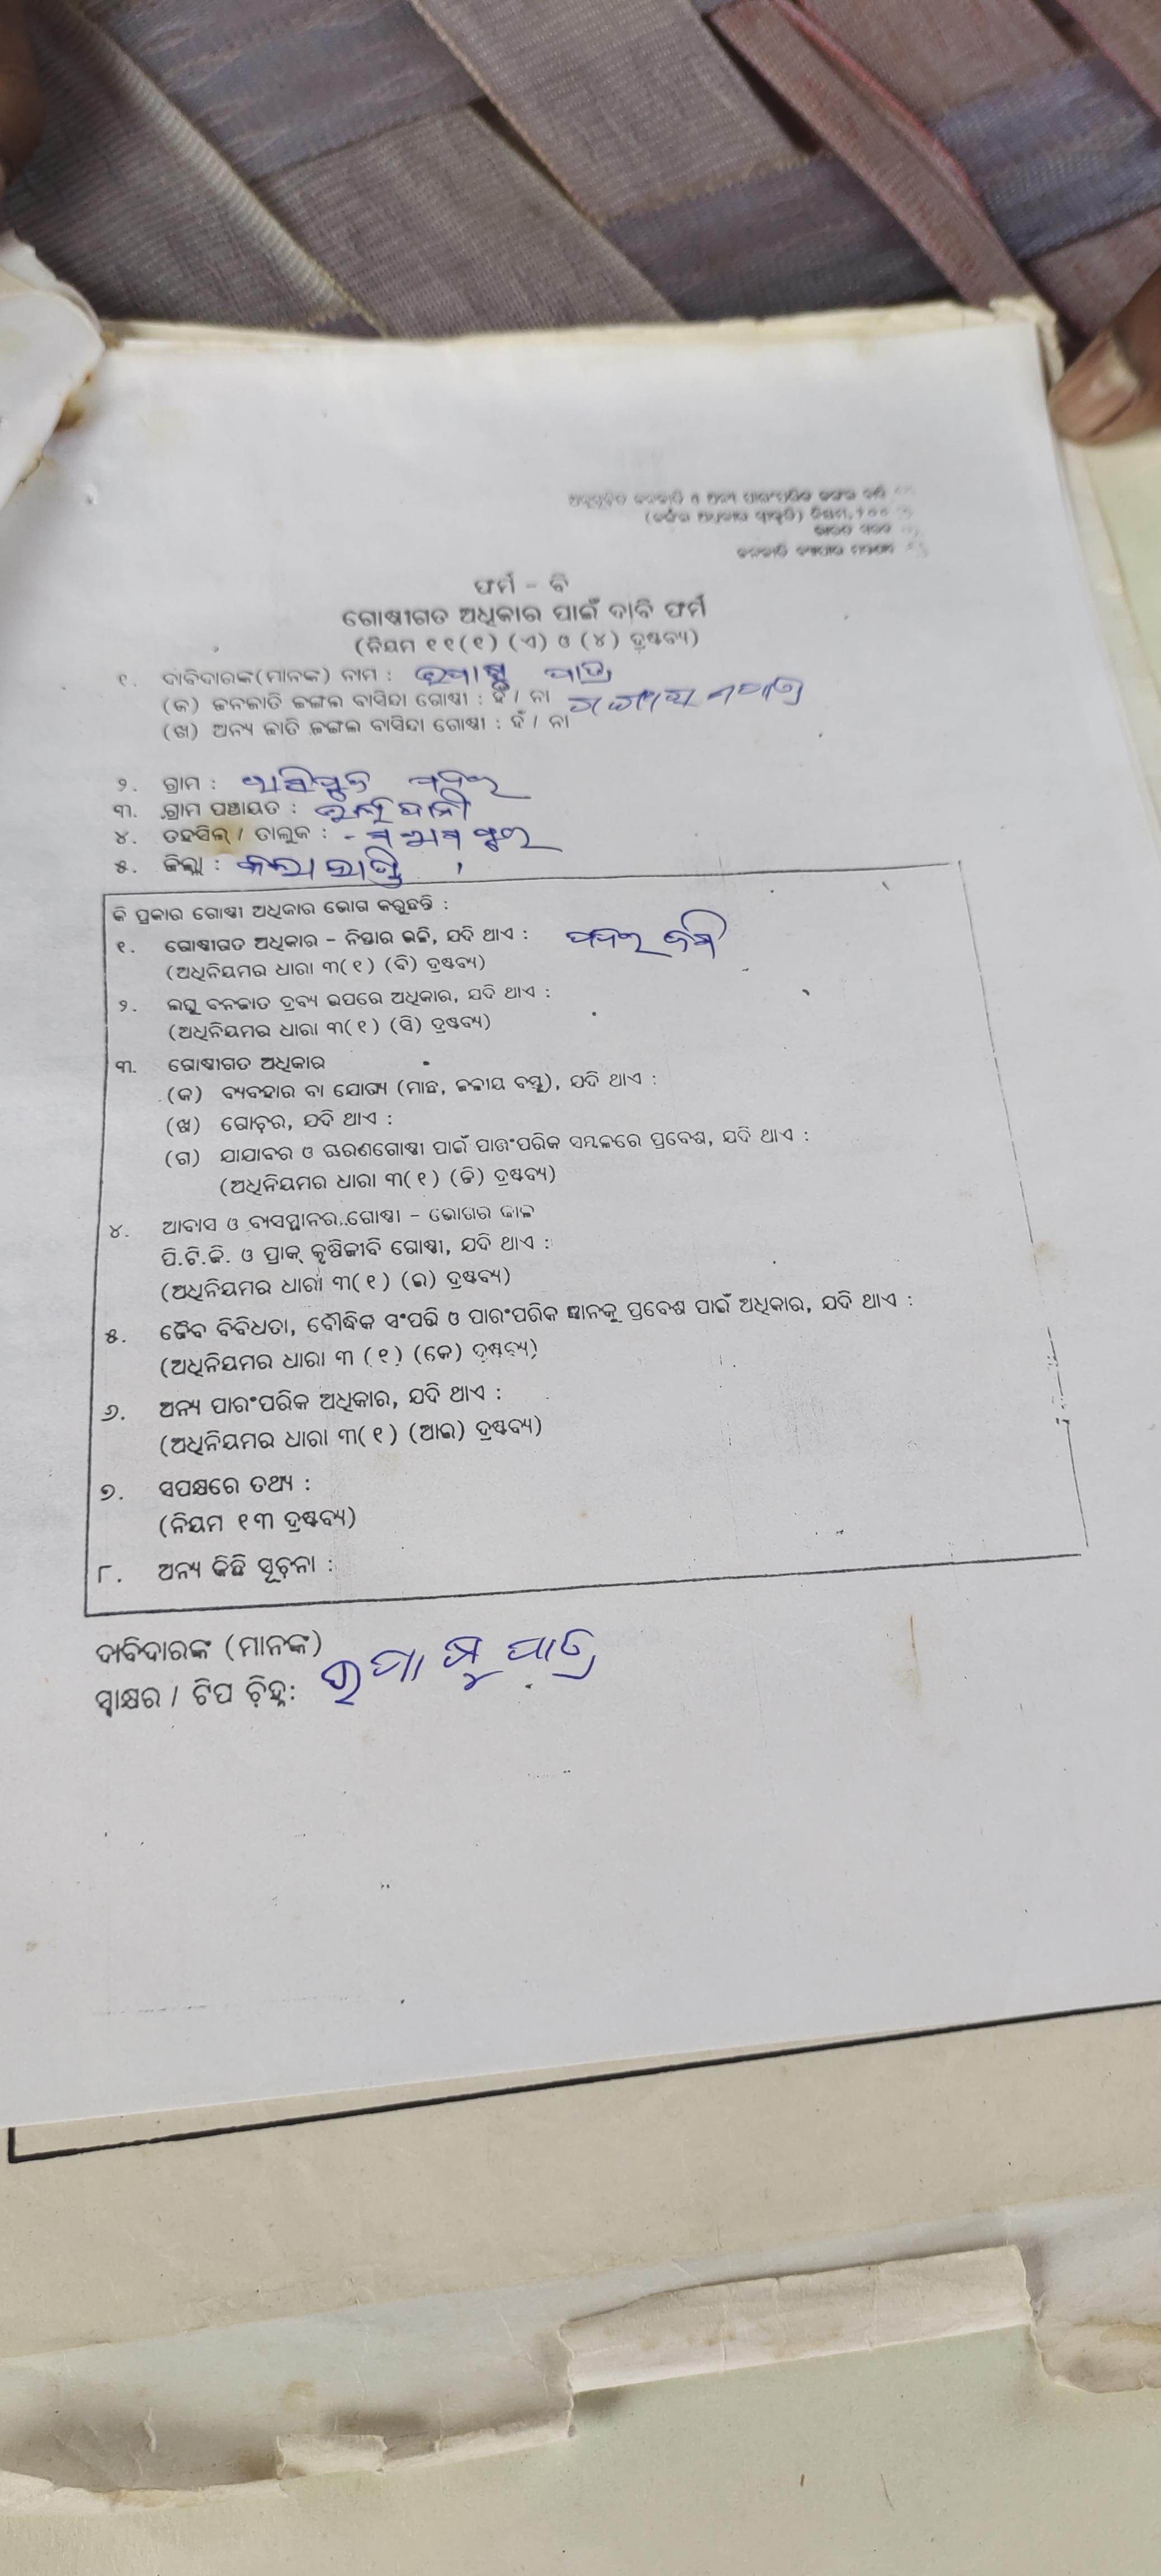 ଫର୍ମ - ବି
ଗୋଷ୍ଠୀଗତ ଅଧିକାର ପାଇଁ ଦାବି ଫର୍ମ
(ନିୟମ ୧୧(୧) (ଏ) ଓ (୪) ଦ୍ରଷ୍ଟବ୍ୟ)
୧. ଦାବିଦାରଙ୍କ(ମାନଙ୍କ) ନାମ : ପାତ୍ର
(କ) ଜନଜାତି ଜଙ୍ଗଲ ବାସିନ୍ଦା ଗୋଷ୍ଠୀ : ହଁ / ନା
(ଖ) ଅନ୍ୟ ଜାତି ଜଙ୍ଗଲ ବାସିନ୍ଦା ଗୋଷ୍ଠୀ : ହଁ / ନା
୨. ଗ୍ରାମ :
୩. ଗ୍ରାମ ପଞ୍ଚାୟତ :
୪. ତହସିଲ୍ / ତାଲୁକ :
୫. ଜିଲ୍ଲା : କଳାହାଣ୍ଡି
କି ପ୍ରକାର ଗୋଷ୍ଠୀ ଅଧିକାର ଭୋଗ କରୁଛନ୍ତି :
୧. ଗୋଷ୍ଠୀଗତ ଅଧିକାର - ନିସ୍ତାର ଭଳି, ଯଦି ଥାଏ :
(ଅଧିନିୟମର ଧାରା ୩(୧) (ବି) ଦ୍ରଷ୍ଟବ୍ୟ)
୨. ଲଘୁ ବନଜାତ ଦ୍ରବ୍ୟ ଉପରେ ଅଧିକାର, ଯଦି ଥାଏ :
(ଅଧିନିୟମର ଧାରା ୩(୧) (ସି) ଦ୍ରଷ୍ଟବ୍ୟ)
୩. ଗୋଷ୍ଠୀଗତ ଅଧିକାର
(କ) ବ୍ୟବହାର ବା ଯୋଗ୍ୟ (ମାଛ, ଜଳୀୟ ବସ୍ତୁ), ଯଦି ଥାଏ :
(ଖ) ଗୋଚର, ଯଦି ଥାଏ :
(ଗ) ଯାଯାବର ଓ ଚାରଣଗୋଷ୍ଠୀ ପାଇଁ ପାରଂପରିକ ସମ୍ବଳରେ ପ୍ରବେଶ, ଯଦି ଥାଏ :
(ଅଧିନିୟମର ଧାରା ୩(୧) (ଡି) ଦ୍ରଷ୍ଟବ୍ୟ)
୪. ଆବାସ ଓ ବାସସ୍ଥାନର ଗୋଷ୍ଠୀ - ଭୋଗର କାଳ
ପି.ଟି.ଜି. ଓ ପ୍ରାକ୍ କୃଷିଜୀବି ଗୋଷ୍ଠୀ, ଯଦି ଥାଏ :
(ଅଧିନିୟମର ଧାରା ୩(୧) (ଇ) ଦ୍ରଷ୍ଟବ୍ୟ)
୫. ଜୈବ ବିବିଧତା, ବୌଦ୍ଧିକ ସଂପତ୍ତି ଓ ପାରଂପରିକ ଜ୍ଞାନକୁ ପ୍ରବେଶ ପାଇଁ ଅଧିକାର, ଯଦି ଥାଏ :
(ଅଧିନିୟମର ଧାରା ୩ (୧) (କେ) ଦ୍ରଷ୍ଟବ୍ୟ)
୬. ଅନ୍ୟ ପାରଂପରିକ ଅଧିକାର, ଯଦି ଥାଏ :
(ଅଧିନିୟମର ଧାରା ୩(୧) (ଆଇ) ଦ୍ରଷ୍ଟବ୍ୟ)
୭. ସପକ୍ଷରେ ତଥ୍ୟ :
(ନିୟମ ୧୩ ଦ୍ରଷ୍ଟବ୍ୟ)
୮. ଅନ୍ୟ କିଛି ସୂଚନା :
ଦାବିଦାରଙ୍କ (ମାନଙ୍କ)
ସ୍ୱାକ୍ଷର / ଟିପ ଚିହ୍ନ: ପାତ୍ର